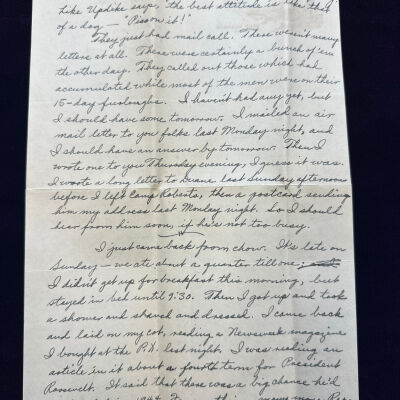 Like Updike says, "the best attitude is like that
of a dog — 'Piss on it!'"
They just had mail call. There weren't many
letters at all. There were certainly a bunch of 'em
the other day. They called out those which had
accumulated while most of the men were on their
15-day furloughs. I haven't had any yet, but
I should have some tomorrow. I mailed an air
mail letter to you folks last Monday night, and
I should have an answer by tomorrow. Then I
wrote one to you Thursday evening, I guess it was.
I wrote a long letter to Duane last Sunday afternoon
before I left Camp Roberts, then a postcard sending
him my address last Monday night. So I should
hear from him soon, if he's not too busy.
I just came back from chow. It's late on
Sunday — we ate about a quarter till one;
I didn't get up for breakfast this morning, but
stayed in bed until 9:30. Then I got up and took
a shower and shaved and dressed. I came back
and laid on my cot, reading a Newsweek magazine
I bought at the P.X. last night. I was reading an
article in it about a fourth term for President
Roosevelt. It said that there was a big chance he'd
1944